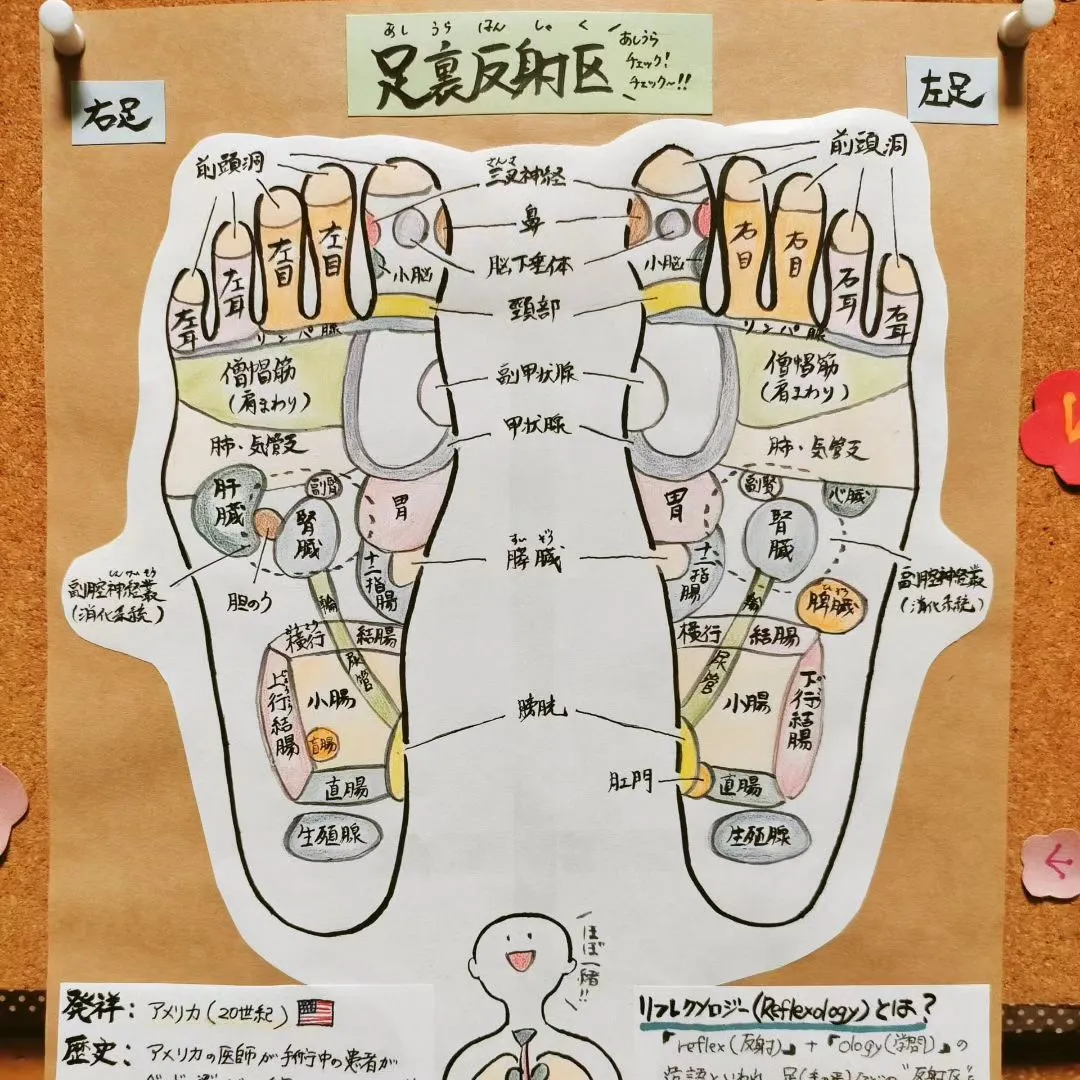 あしうらはんしゃく
足裏反射区
あしうら
チェック!
チェック〜!!
右足
左足
前頭洞
前頭洞
さんさ
三叉神経
鼻
脳下垂体
小脳
小脳
頸部
左目
左目
左耳
左耳
右目
右目
右耳
右耳
リンパ腺
リンパ腺
僧帽筋
(肩まわり)
僧帽筋
(肩まわり)
副甲状腺
甲状腺
肺・気管支
肺・気管支
肝臓
副腎
腎臓
胃
胃
副腎
腎臓
心臓
すいぞう
膵臓
十二指腸
十二指腸
胆のう
副腔神経叢
(消化系統)
副腔神経叢
(消化系統)
ひぞう
脾臓
輸尿管
輸尿管
横行結腸
横行結腸
上行結腸
小腸
盲腸
小腸
下行結腸
膀胱
肛門
直腸
直腸
生殖腺
生殖腺
ほぼ一緒!!
発祥: アメリカ(20世紀)
歴史: アメリカの医師が手術中の患者が
リフレクソロジー(Reflexology)とは?
「reflex(反射)」+「ology(学問)」の